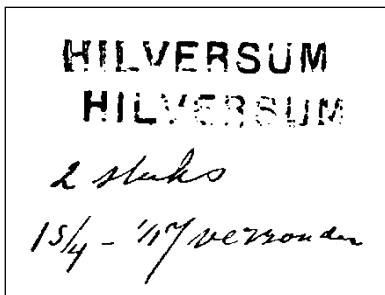 HILVERSUM
HILVERSUM
2 stuks
15/4 - '17 verzonden